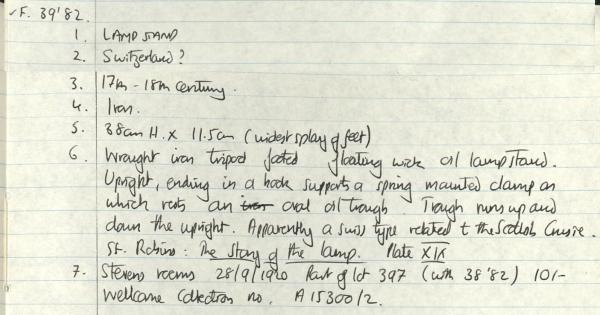 ✓F. 39'82.
1. LAMP STAND
2. Switzerland?
3. 17th - 18th century.
4. Iron.
5. 38cm H. x 11.5cm (widest splay of feet)
6. Wrought iron tripod footed floating wick oil lamp stand.
Upright, ending in a hook supports a spring mounted clamp on
which rests an iron oval oil trough. Trough runs up and
down the upright. Apparently a swiss type related to the Scottish Crusie.
St. Robins: The story of the lamp. Plate XIX
7. Stevens rooms 28/9/1920 Part of lot 397 (with 38'82) 10/-
Wellcome Collection no. A15300/2.